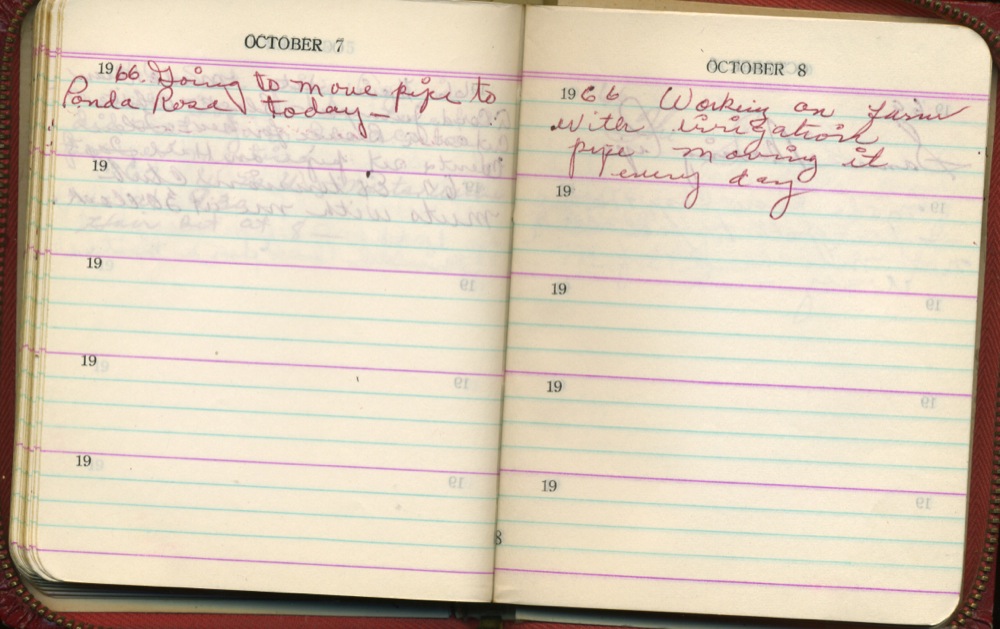 OCTOBER 7
1966 Going to move pipe to
Ponda Rosa today—
19
19
19
19
8
OCTOBER 8
1966 Working on Farm
with irrigation
pipe moving it
every day
19
19
19
19